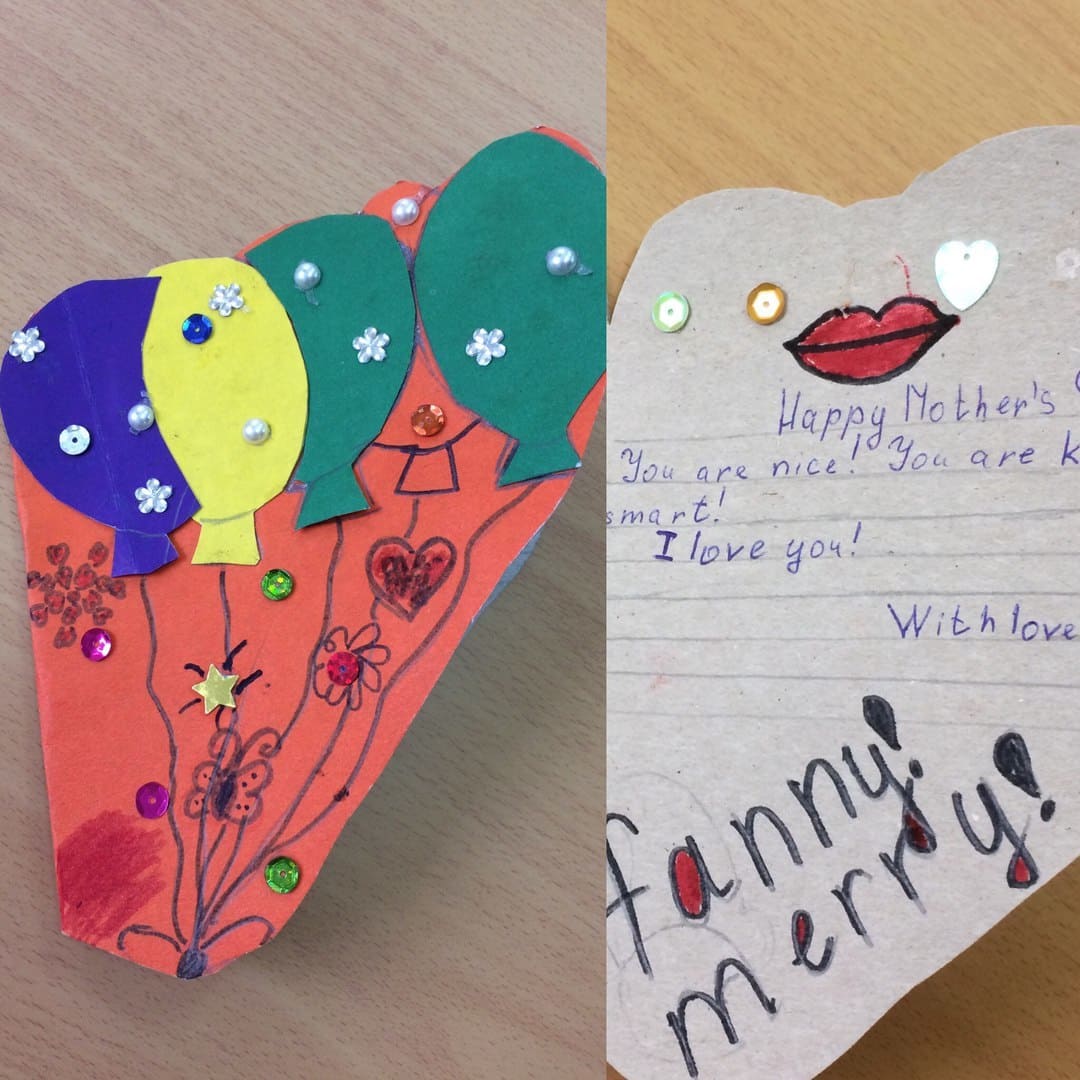 Happy Mother's
You are nice! You are k
smart!
I love you!
With love
fanny!
merry!